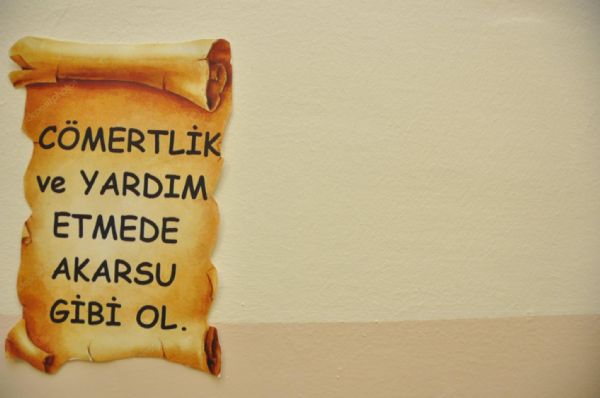 CÖMERTLİK
ve YARDIM
ETMEDE
AKARSU
GİBİ OL.